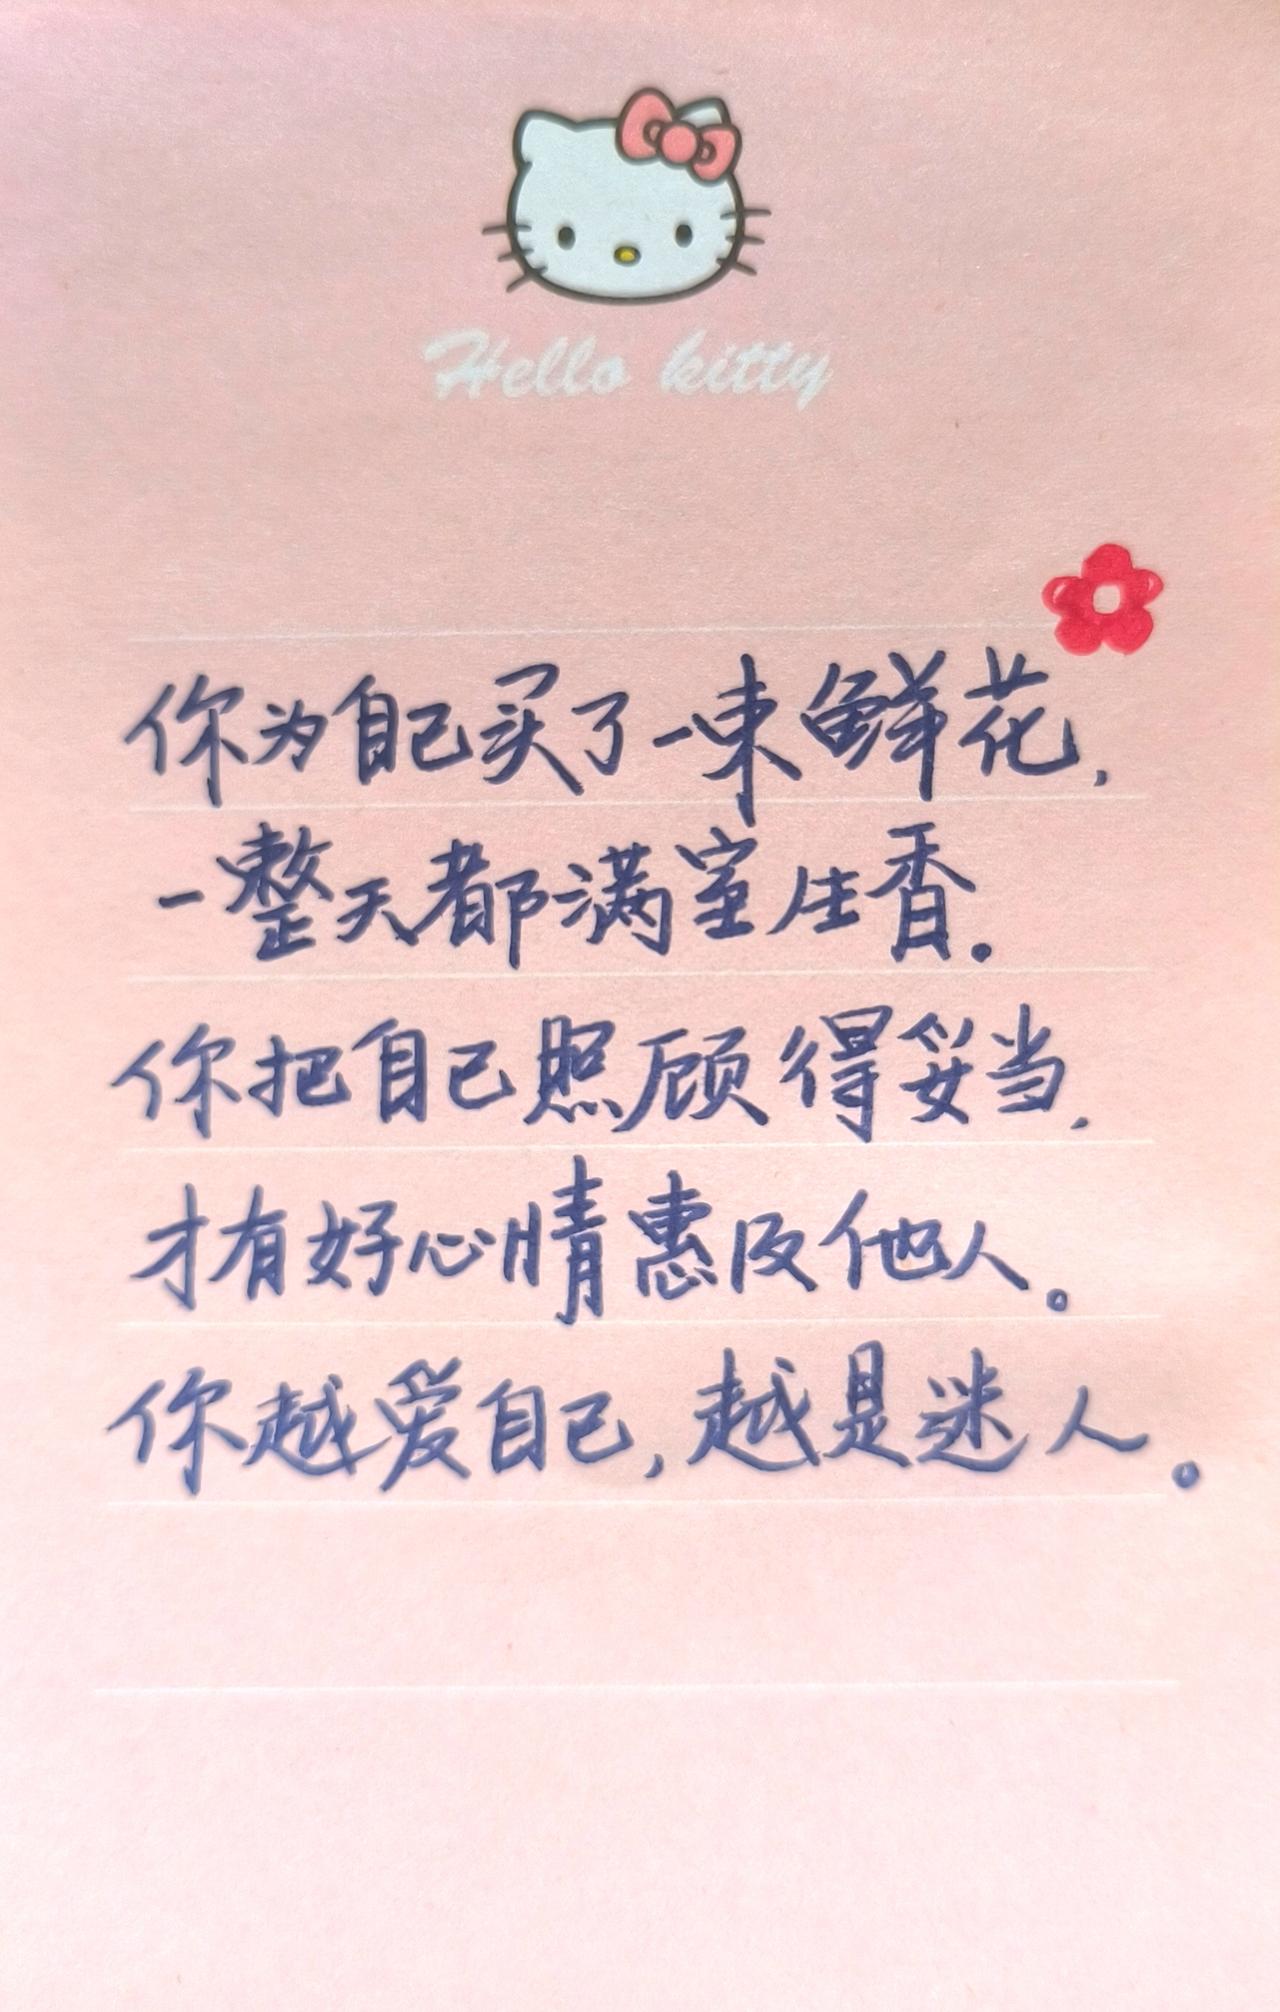 Hello kitty
你为自己买了一束鲜花,
一整天都满室生香。
你把自己照顾得妥当,
才有好心情惠及他人。
你越爱自己,越是迷人。